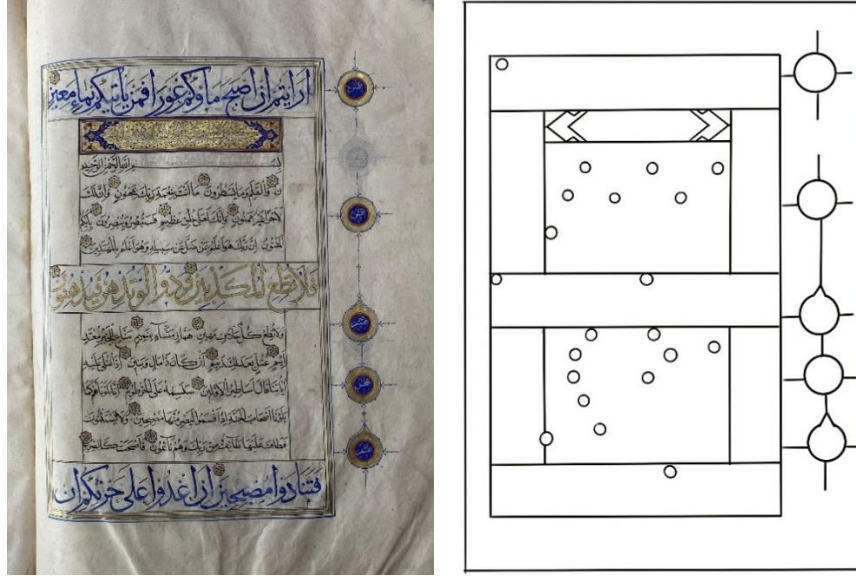 ارايتم ان اصبح ماؤكم غورا فمن ياتيكم بماء معين
بسم الله الرحمن الرحيم
ن والقلم وما يسطرون ما انت بنعمة ربك بمجنون وان لك
لاجرا غير ممنون وانك لعلى خلق عظيم فستبصر ويبصرون بايكم
المفتون ان ربك هو اعلم بمن ضل عن سبيله وهو اعلم بالمهتدين
فلا تطع المكذبين ودوا لو تدهن فيدهنون
ولا تطع كل حلاف مهين هماز مشاء بنميم مناع للخير معتد
اثيم عتل بعد ذلك زنيم ان كان ذا مال وبنين اذا تتلى عليه
اياتنا قال اساطير الاولين سنسمه على الخرطوم انا بلوناهم كما
بلونا اصحاب الجنة اذ اقسموا ليصرمنها مصبحين ولا يستثنون
فطاف عليها طائف من ربك وهم نائمون فاصبحت كالصريم
فتنادوا مصبحين ان اغدوا على حرثكم ان